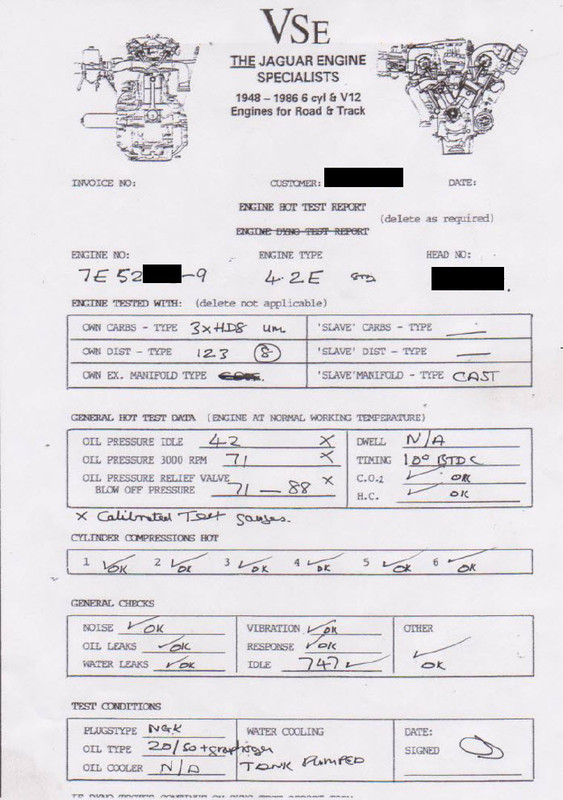 VSE
THE JAGUAR ENGINE
SPECIALISTS
1948 - 1986 6 cyl & V12
Engines for Road & Track
INVOICE NO: CUSTOMER: DATE:
ENGINE HOT TEST REPORT
(delete as required)
ENGINE DYNO TEST REPORT
ENGINE NO: ENGINE TYPE HEAD NO:
7E 52 -9 4.2E STD
ENGINE TESTED WITH: (delete not applicable)
OWN CARBS - TYPE 3xHD8 'SLAVE' CARBS - TYPE —
OWN DIST - TYPE 123 8 'SLAVE' DIST - TYPE —
OWN EX. MANIFOLD TYPE 'SLAVE'MANIFOLD - TYPE CAST
GENERAL HOT TEST DATA (ENGINE AT NORMAL WORKING TEMPERATURE)
OIL PRESSURE IDLE 42 X DWELL N/A
OIL PRESSURE 3000 RPM 71 X TIMING 10° BTDC
OIL PRESSURE RELIEF VALVE X C.O.2 ✓ OK
BLOW OFF PRESSURE 71 — 88 H.C. ✓ OK
X Calibrated Test gauges.
CYLINDER COMPRESSIONS HOT
1 ✓ OK 2 ✓ OK 3 ✓ OK 4 ✓ OK 5 ✓ OK 6 ✓ OK
GENERAL CHECKS
NOISE ✓ OK VIBRATION ✓ OK OTHER
OIL LEAKS ✓ OK RESPONSE ✓ OK ✓
WATER LEAKS ✓ OK IDLE 747 ✓ OK
TEST CONDITIONS
PLUGSTYPE NGK WATER COOLING DATE:
OIL TYPE 20/50 + SIGNED
OIL COOLER N/A TANK PUMPED